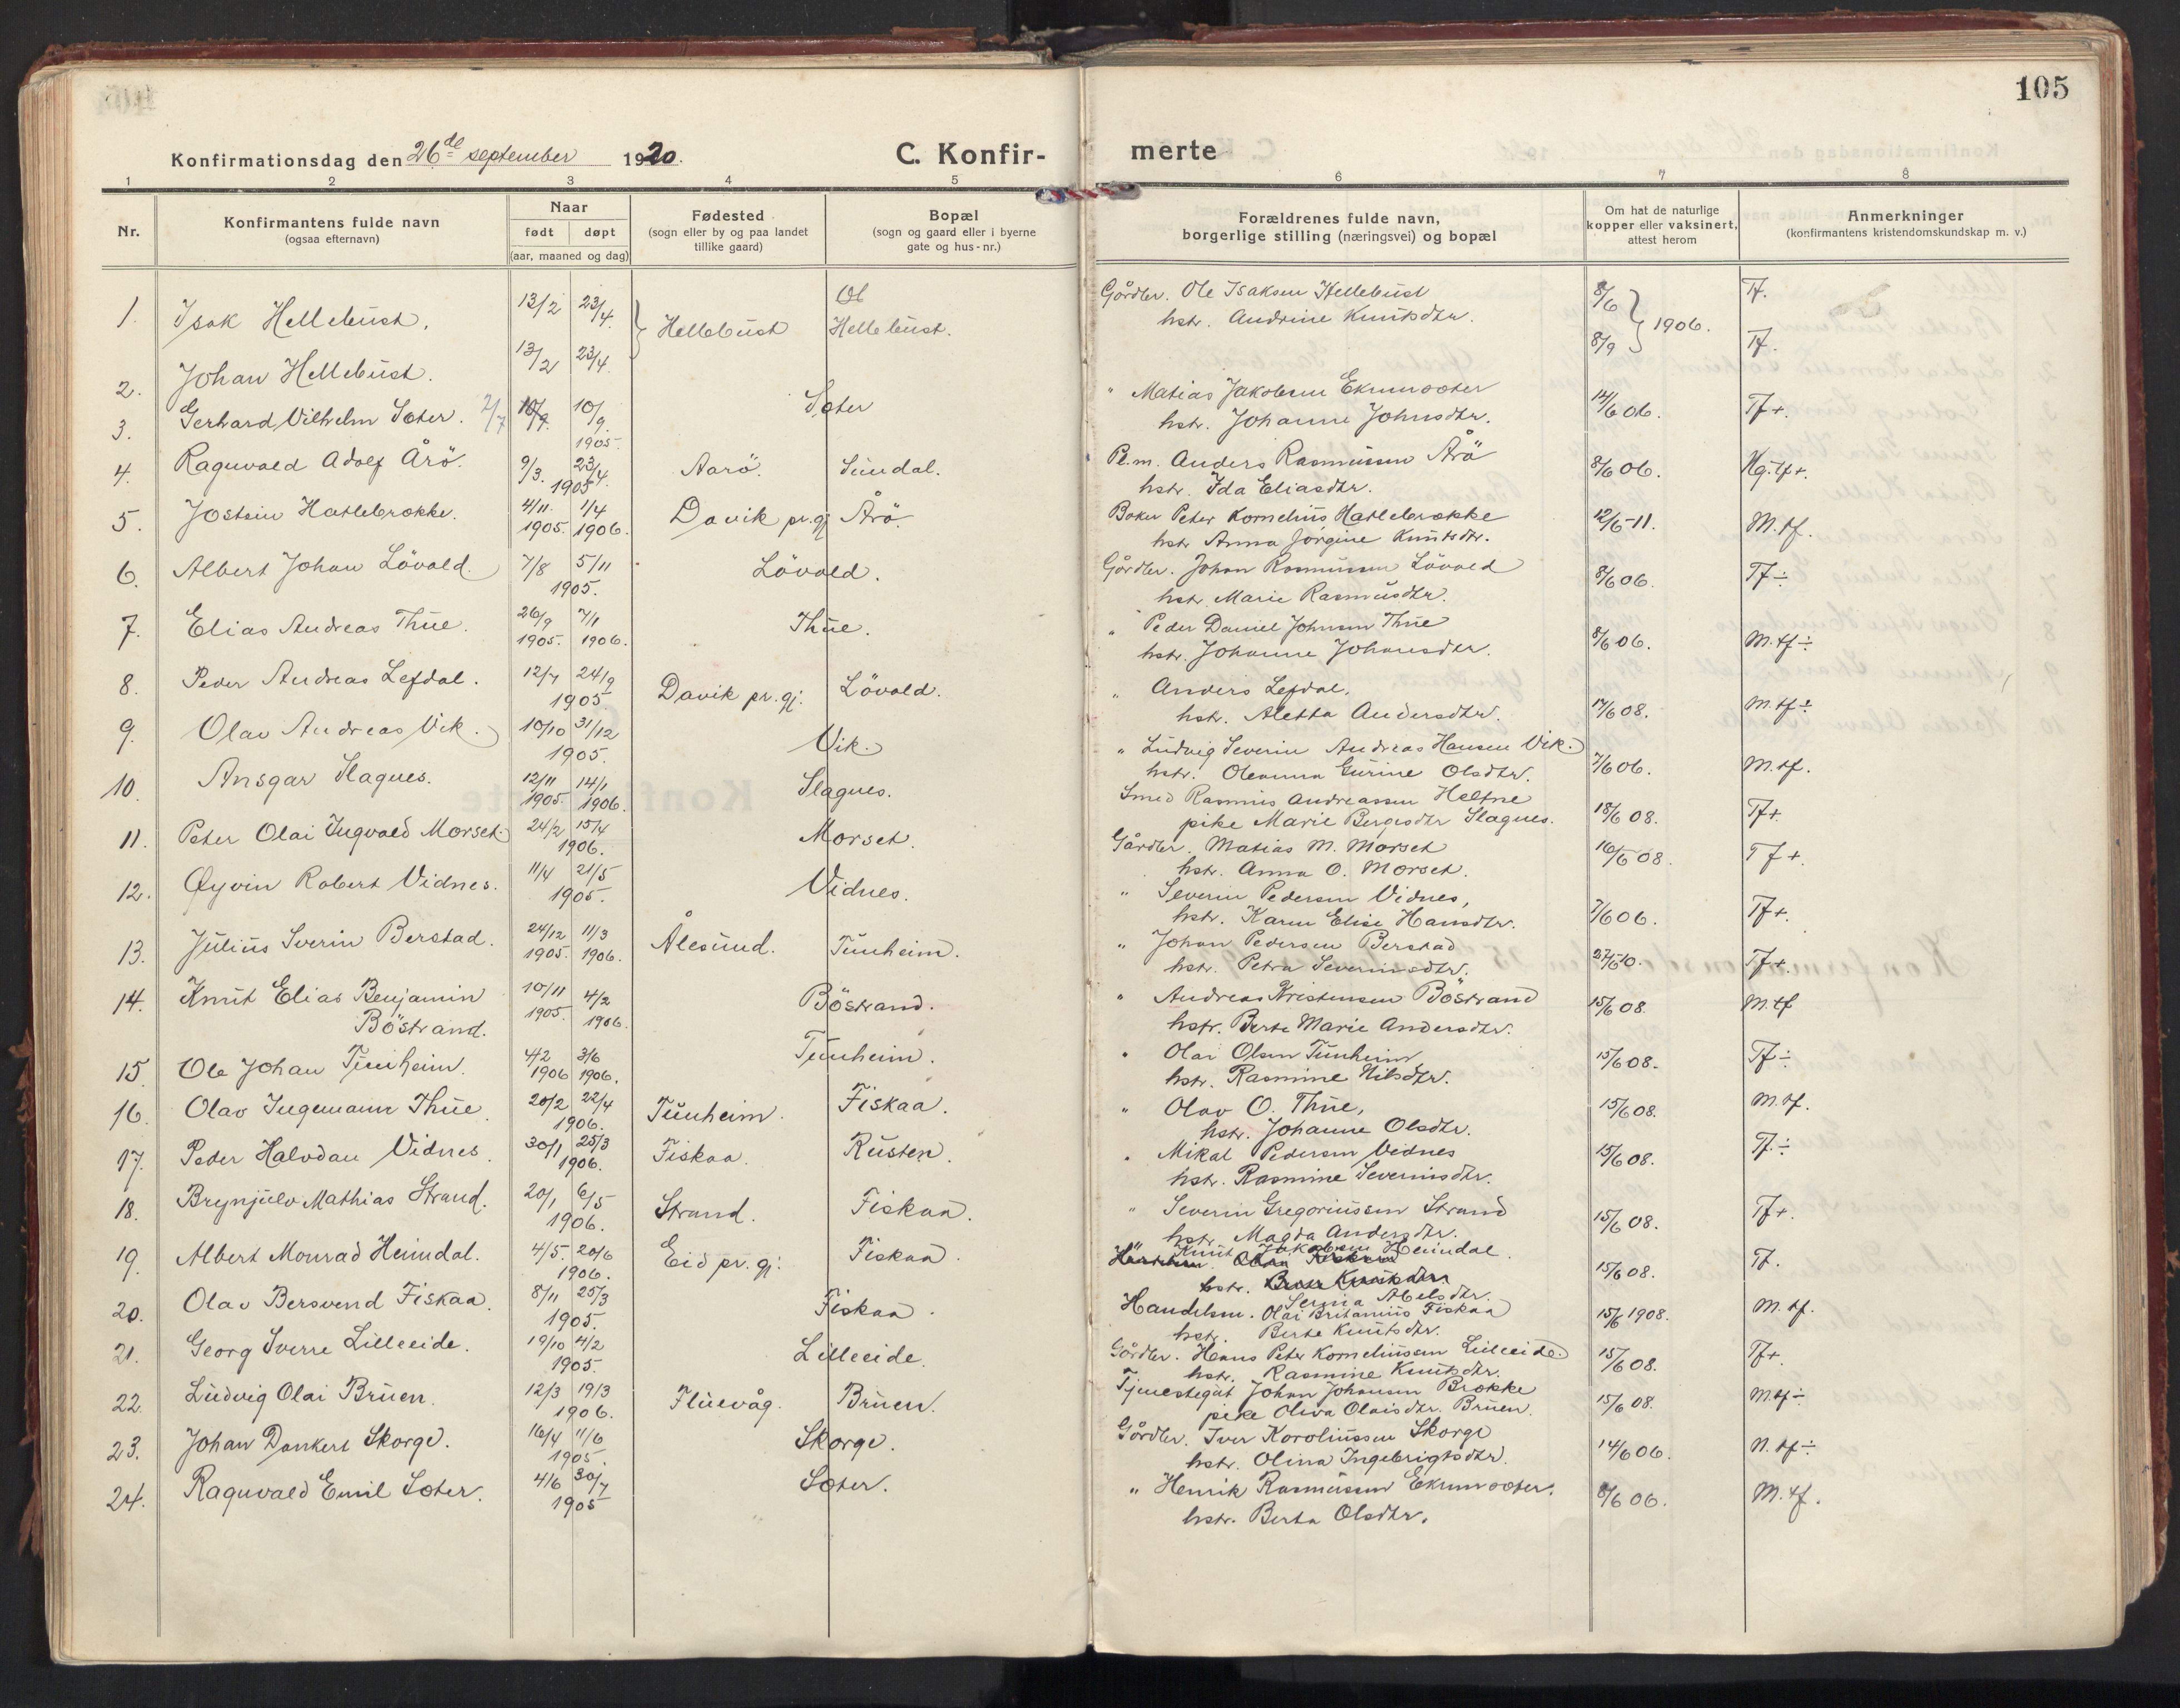 105
Konfirmationsdag den 26de september 1920.
C. Konfir-
merte
1 2 3 4 5 6 7 8
Nr.
Konfirmantens fulde navn
(ogsaa efternavn)
Naar
født døpt
(aar, maaned og dag)
Fødested
(sogn eller by og paa landet
tillike gaard)
Bopæl
(sogn og gaard eller i byerne
gate og hus-nr.)
Forældrenes fulde navn,
borgerlige stilling (næringsvei) og bopæl
Om hat de naturlige
kopper eller vaksinert,
attest herom
Anmerkninger
(konfirmantens kristendomskundskap m. v.)
1. Isak Hellebust. 13/2 23/4. } Hellebust Hellebust. Gårdbr. Ole Isaksen Hellebust 8/6 } 1906. Tf.
hstr. Andrine Knutsdtr.
2. Johan Hellebust. 13/2 23/4. 8/9 Tf.
3. Gerhard Vilhelm Sæter. 2/7 10/9. Sæter " Matias Jakobsen Ekremsæter 14/6 06. Tf+.
1905. hstr. Johanne Johnsdtr.
4. Ragnvald Adolf Årö. 9/3. 23/4. Aarö. Sundal. Pl.m. Anders Rasmussen Årö 8/6 06. Mg.tf+.
1905 hstr. Ida Eliasdtr.
5. Jostein Hatlebrække. 4/11. 1/4 Davik pr.gj Årö. Baker Peter Kornelius Hatlebrække 12/6-11. M.tf.
1905. 1906. hstr Anna Jørgine Knutsdtr.
6. Albert Johan Lövold. 7/8 5/11 Lövold. Gårdbr. Johan Rasmussen Lövold 8/6 06. Tf÷
1905. hstr. Marie Rasmusdtr.
7. Elias Andreas Thue. 26/9 7/1 Thue. " Peder Daniel Johnsen Thue 8/6 06. M.tf÷
1905. 1906. hstr. Johanne Johansdtr.
8. Peder Andreas Lefdal. 12/7 24/9 Davik pr.gj. Lövold. " Anders Lefdal. 17/6 08. M.tf÷
1905. hstr. Aletta Andersdtr.
9. Olav Andreas Vik. 10/10 31/12 Vik. " Ludvig Severin Andreas Hansen Vik. 7/6 06. M.tf.
1905. hstr. Oleanna Gurine Olsdtr.
10. Ansgar Slagnes. 12/11 14/1 Slagnes. Smed Rasmus Andreassen Heltne 18/6 08. Tf+
1905. 1906. pike Marie Bergesdtr Slagnes.
11. Peter Olai Ingvald Morset. 24/2 15/4 Morset. Gårdbr. Matias M. Morset 16/6 08. Tf+.
1906. hstr. Anna O. Morset.
12. Øyvin Robert Vidnes. 11/4 21/5 Vidnes. " Severin Pedersen Vidnes, 7/6 06. Tf+.
1905. hstr. Karen Elise Hansdtr.
13. Julius Sverin Berstad. 24/12 11/3 Ålesund. Tunheim. " Johan Pedersen Berstad 27/5 10. Tf+.
1905. 1906. hstr. Petra Severinsdtr.
14. Knut Elias Benjamin 10/11 4/2 Böstrand. " Andreas Kristensen Böstrand 15/6 08. M.tf
Böstrand. 1905. 1906. hstr. Berte Marie Andersdtr.
15. Ole Johan Tunheim. 4/2 3/6 Tunheim. " Olai Olsen Tunheim 15/6 08. Tf÷
1906 1906. hstr. Rasmine Nilsdtr.
16. Olav Ingemann Thue 20/2 22/4 Tunheim. Fiskaa. " Olav O. Thue, 15/6 08. M.tf.
1906. hstr. Johanne Olsdtr.
17. Peder Halvdan Vidnes. 30/1 25/3 Fiskaa. Rusten. " Mikal Pedersen Vidnes 15/6 08. Tf.÷
1906. hstr. Rasmine Severinsdtr.
18. Brynjulv Mathias Strand. 20/1 6/5 Strand. Fiskaa. " Severin Gregoriussen Strand 15/6 08. Tf+.
1906. hstr. Magda Andersdtr.
19. Albert Monrad Heimdal. 4/5. 20/6 Eid pr.gj: Fiskaa. " Knut Jakobsen Heimdal. 15/6 08. Tf.
1906. hstr. Serina Abelsdtr.
20. Olav Bersvend Fiskaa. 8/11 25/3 Fiskaa. Handelsm. Olai Britanius Fiskaa 15/6 1908. M.tf.
1905. hstr. Berte Knutsdtr.
21. Georg Sverre Lilleeide. 19/10 4/2 Lilleeide. Gårdbr. Hans Peter Korneliussen Lilleeide. 15/6 08. Tf+.
1905. hstr. Rasmine Knutsdtr.
22. Ludvig Olai Bruen. 12/3 19/3 Fluevåg. Bruen. Tjenestegut Johan Johansen Brække 15/6 08. M.tf÷
1906. pike Oliva Olaisdtr. Bruen.
23. Johan Dankert Skorge. 16/4 11/6 Skorge. Gårdbr. Iver Karoliussen Skorge 14/6 06. N.tf÷
1905. hstr. Olina Ingebrigtsdtr.
24. Ragnvald Emil Sæter. 4/6 30/7 Sæter. " Henrik Rasmussen Ekremsæter. 8/6 06. M.tf.
1905 hstr. Berta Olsdtr.